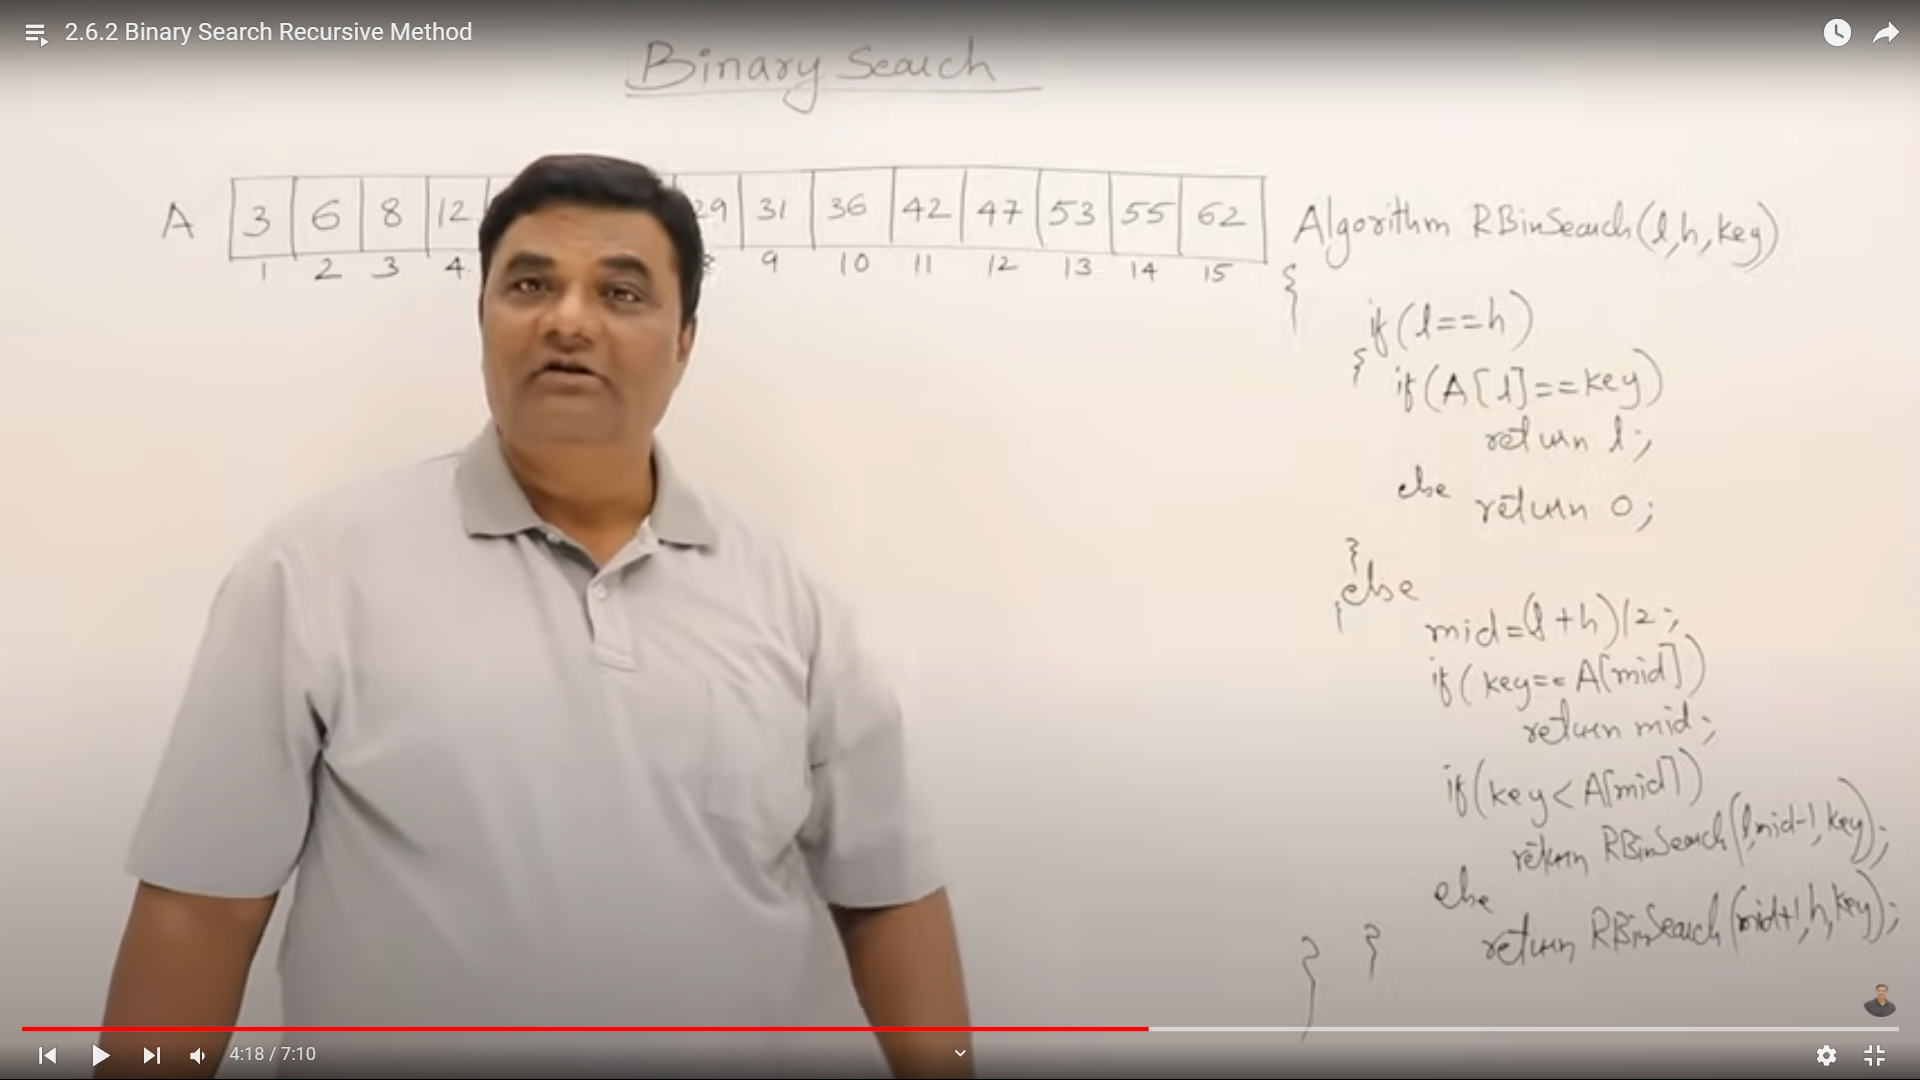 2.6.2 Binary Search Recursive Method
Binary Search
A 3 6 8 12 29 31 36 42 47 53 55 62
1 2 3 4 8 9 10 11 12 13 14 15
Algorithm RBinSearch(l,h,key)
{
if(l==h)
{
if(A[l]==key)
return l;
else return 0;
}
else
{
mid=(l+h)/2;
if(key==A[mid])
return mid;
if(key<A[mid])
return RBinSearch(l,mid-1,key);
else
return RBinSearch(mid+1,h,key);
} }
4:18 / 7:10